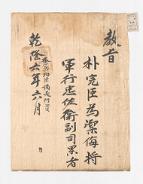 教旨
朴完臣爲禦侮將
軍行忠佐衛副司果者
乾隆六年六月